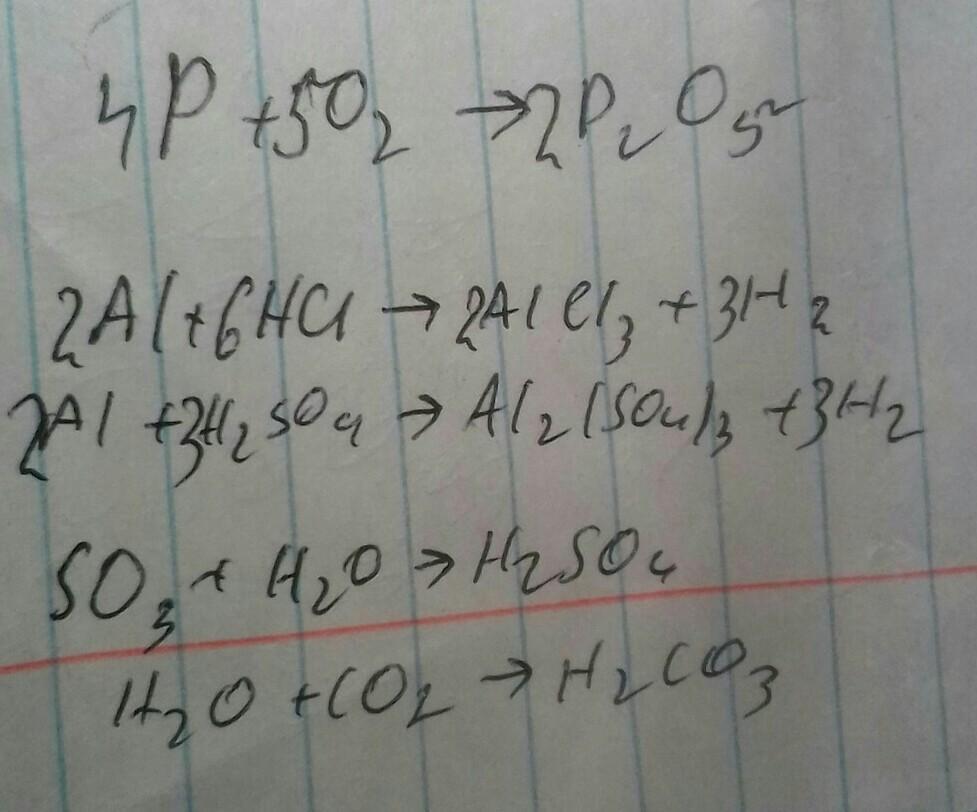 4P +5O₂ →2P₂O₅
2Al+6HCl →2AlCl₃ +3H₂
2Al +3H₂SO₄ → Al₂(SO₄)₃ +3H₂
SO₃ + H₂O → H₂SO₄
H₂O +CO₂ → H₂CO₃